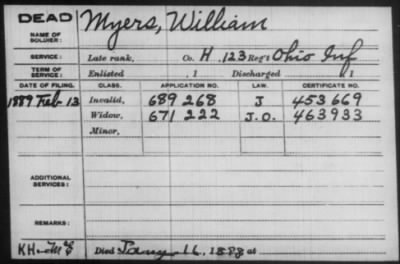 DEAD
NAME OF SOLDIER: Myers, William
SERVICE: Late rank, Co. H, 123 Reg't Ohio Inf
TERM OF SERVICE: Enlisted , 1 Discharged , 1
DATE OF FILING. CLASS. APPLICATION NO. LAW. CERTIFICATE NO.
1889 Feb 13 Invalid, 689 268 J 453 669
Widow, 671 222 J.O. 463933
Minor,
ADDITIONAL SERVICES:
REMARKS:
Died Jany 16, 1888 at